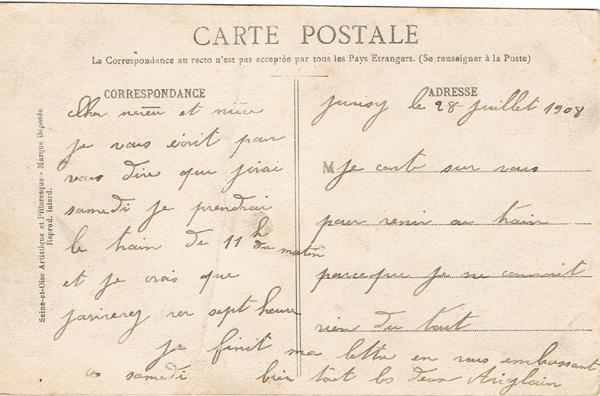 CARTE POSTALE
La Correspondance au recto n'est pas acceptée par tous les Pays Etrangers. (Se renseigner à la Poste)
CORRESPONDANCE
Cher neveu et nièce
je vous écrit pour
vous dire que jirai
samedi je prendrai
le train de 11 h du matin
et je crois que
jarirerez ver sept heure
ADRESSE
Juvisy le 28 juillet 1908
M je conte sur vous
pour venir au train
parceque je ne connait
rien du tout
je finit ma lettre en vous embrassant
a samedi bien tout les deux
Seine-et-Oise Artistique et Pittoresque - Marque Déposée
Reprod. interd.